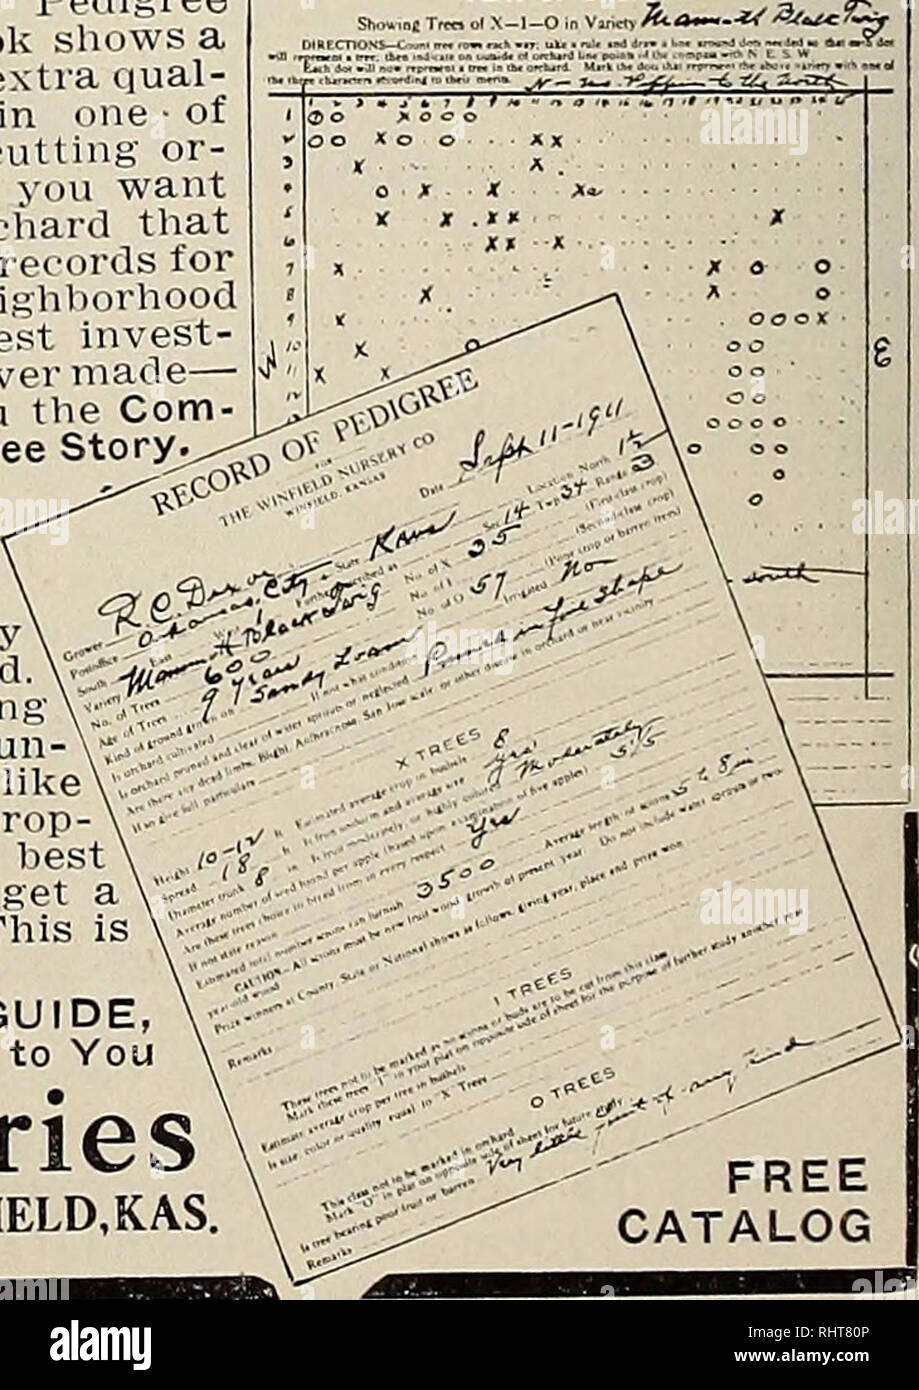 Pedigree
ok shows a
extra qual-
in one of
cutting or-
you want
chard that
records for
ighborhood
est invest-
ver made—
u the Com-
ee Story.
y
d.
ng
un-
like
rop-
best
get a
This is
GUIDE,
to You
ries
IELD, KAS.
FREE
CATALOG
Showing Trees of X—I—O in Variety Mammoth Black Twig
DIRECTIONS—Count tree rows each way; take a rule and draw a line around dots needed so that each dot
will represent a tree; then indicate on outside of orchard line points of the compass with N. E. S. W.
Each dot will now represent a tree in the orchard. Mark the dots that represent the above variety with one of
the three characters according to their merits.
N - Mo. Pippin to the north
W
E
south
RECORD OF PEDIGREE
FOR
THE WINFIELD NURSERY CO
WINFIELD, KANSAS
Date Sept 11-1911
Grower R.C. Dixon
Postoffice Arkansas City State Kans
Location North 1½
South East West 1 Further described as Sec. 14 Twp. 34 Range 3
Variety Mammoth Black Twig No. of X 35 (First-class crop)
No. of Trees 600 No. of I (Second-class crop)
Age of Trees 9 years No. of O 57 (Poor crop or barren trees)
Kind of ground grown on Sandy Loam Irrigated No
Is orchard cultivated If not what condition
Is orchard pruned and clear of water sprouts or neglected Pruned in fine shape
Are there any dead limbs, Blight, Anthracnose, San Jose scale, or other disease in orchard or near vicinity
If so give full particulars
X TREES
Height 10-12 ft. Estimated average crop in bushels 8
Spread 18 ft. Is fruit uniform and average size yes
Diameter trunk 8 in. Is fruit moderately, or highly colored Moderately
Average number of seed found per apple (based upon examination of five apples) 5.15
Are these trees choice to breed from in every respect yes
If not state reason
Estimated total number scions can furnish 3500 Average length of scions 5 to 8 in
CAUTION—All scions must be new fruit wood growth of present year. Do not include water sprouts or two-
year-old wood
Prize winners at County, State or National shows as follows, giving year, place and prize won
Remarks
I TREES
These trees not to be marked as no scions or buds are to be cut from this class
Mark these trees "I" in your plat on opposite side of sheet for the purpose of further study another year
Estimate average crop per tree in bushels
Is size, color or quality equal to "X" Trees
O TREES
This class not to be marked in orchard.
Mark "O" in plat on opposite side of sheet for future study
Is tree bearing poor fruit or barren Very little fruit of any kind
Remarks
alamy
Image ID: RHT80P
www.alamy.com